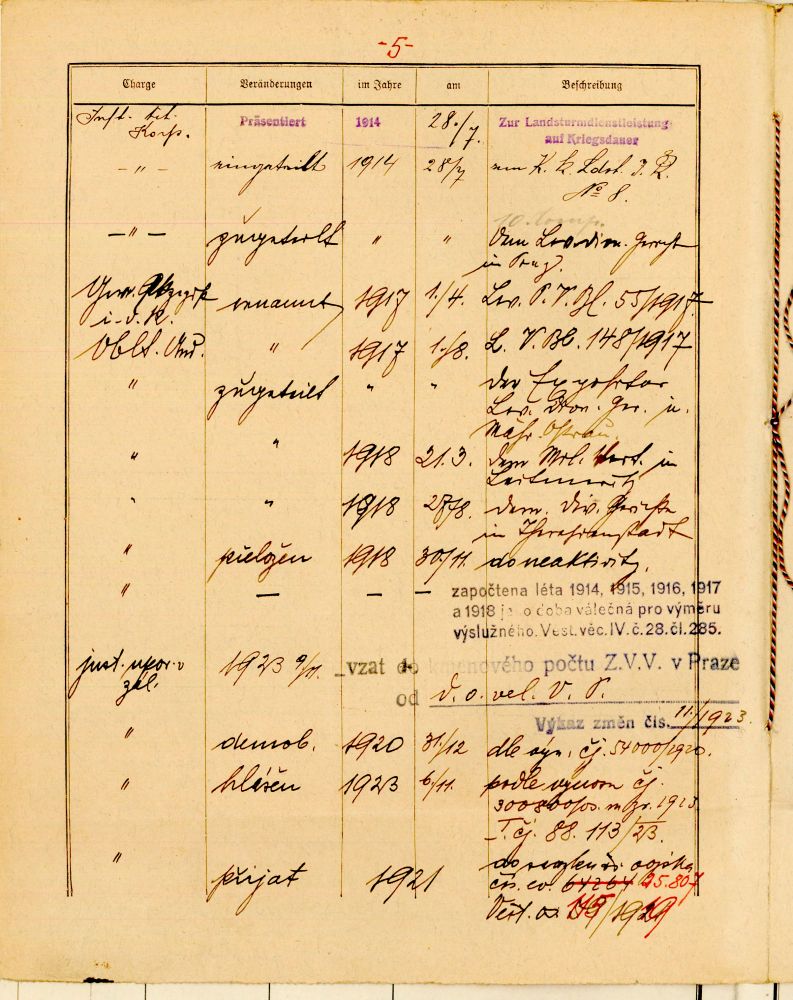 -5-
Charge Veränderungen im Jahre am Beschreibung
Inft. tit. Präsentiert 1914 28./7. Zur Landsturmdienstleistung
Korp. auf Kriegsdauer
- " - eingeteilt 1914 28/7 zum K. k. Ldst. I. R.
No 8.
10. Comp.
- " - zugeteilt " " dem Lev. dion. Gericht
in Prag.
ernannt 1917 1./4. Lev. P. V. Bl. 55/1917.
i. d. R.
Oblt. Aud. " 1917 1./8. L. V. Bl. 148/1917
" zugeteilt " " der Expositur
Lev. dion. Ger. in
Mähr. Ostrau.
" " 1918 21.3. dem Mil. in
Leitmeritz
" " 1918 28/8. dem. Div. Gerichte
in Theresienstadt
" přeložen 1918 30/11. do neaktivity.
" - - - započtena léta 1914, 1915, 1916, 1917
a 1918 jako doba válečná pro výměru
výslužného. Věst. věc. IV. č. 28. čl. 285.
just. npor. v 1923 vzat do kmenového počtu Z.V.V. v Praze
zál. od d. o. vel. V. P.
Výkaz změn čís. 11/1923.
" demob. 1920 31/12 dle výn. čj. 54000/1920.
" hlášen 1923 6/11. podle výnosu čj.
1923
I. čj. 88. 113/23.
" přijat 1921 do vojska
čís. ev. 64264 75.807
Věst.